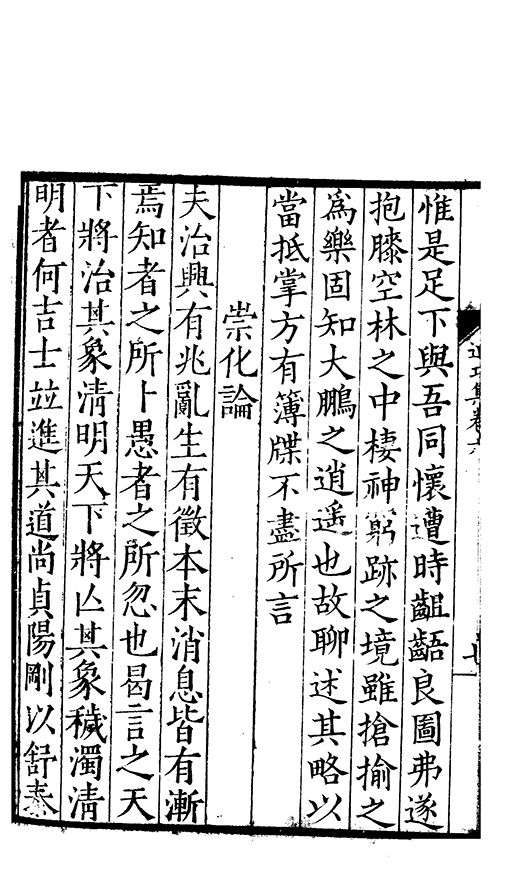 惟是足下與吾同懷遭時齟齬良圖弗遂
抱膝空林之中棲神窮跡之境雖搶揄之
爲樂固知大鵬之逍遥也故聊述其略以
當抵掌方有簿牒不盡所言
崇化論
夫治興有兆亂生有徵本末消息皆有漸
焉知者之所卜愚者之所忽也曷言之天
下將治其象清明天下將亾其象穢濁清
明者何吉士並進其道尚貞陽剛以舒泰